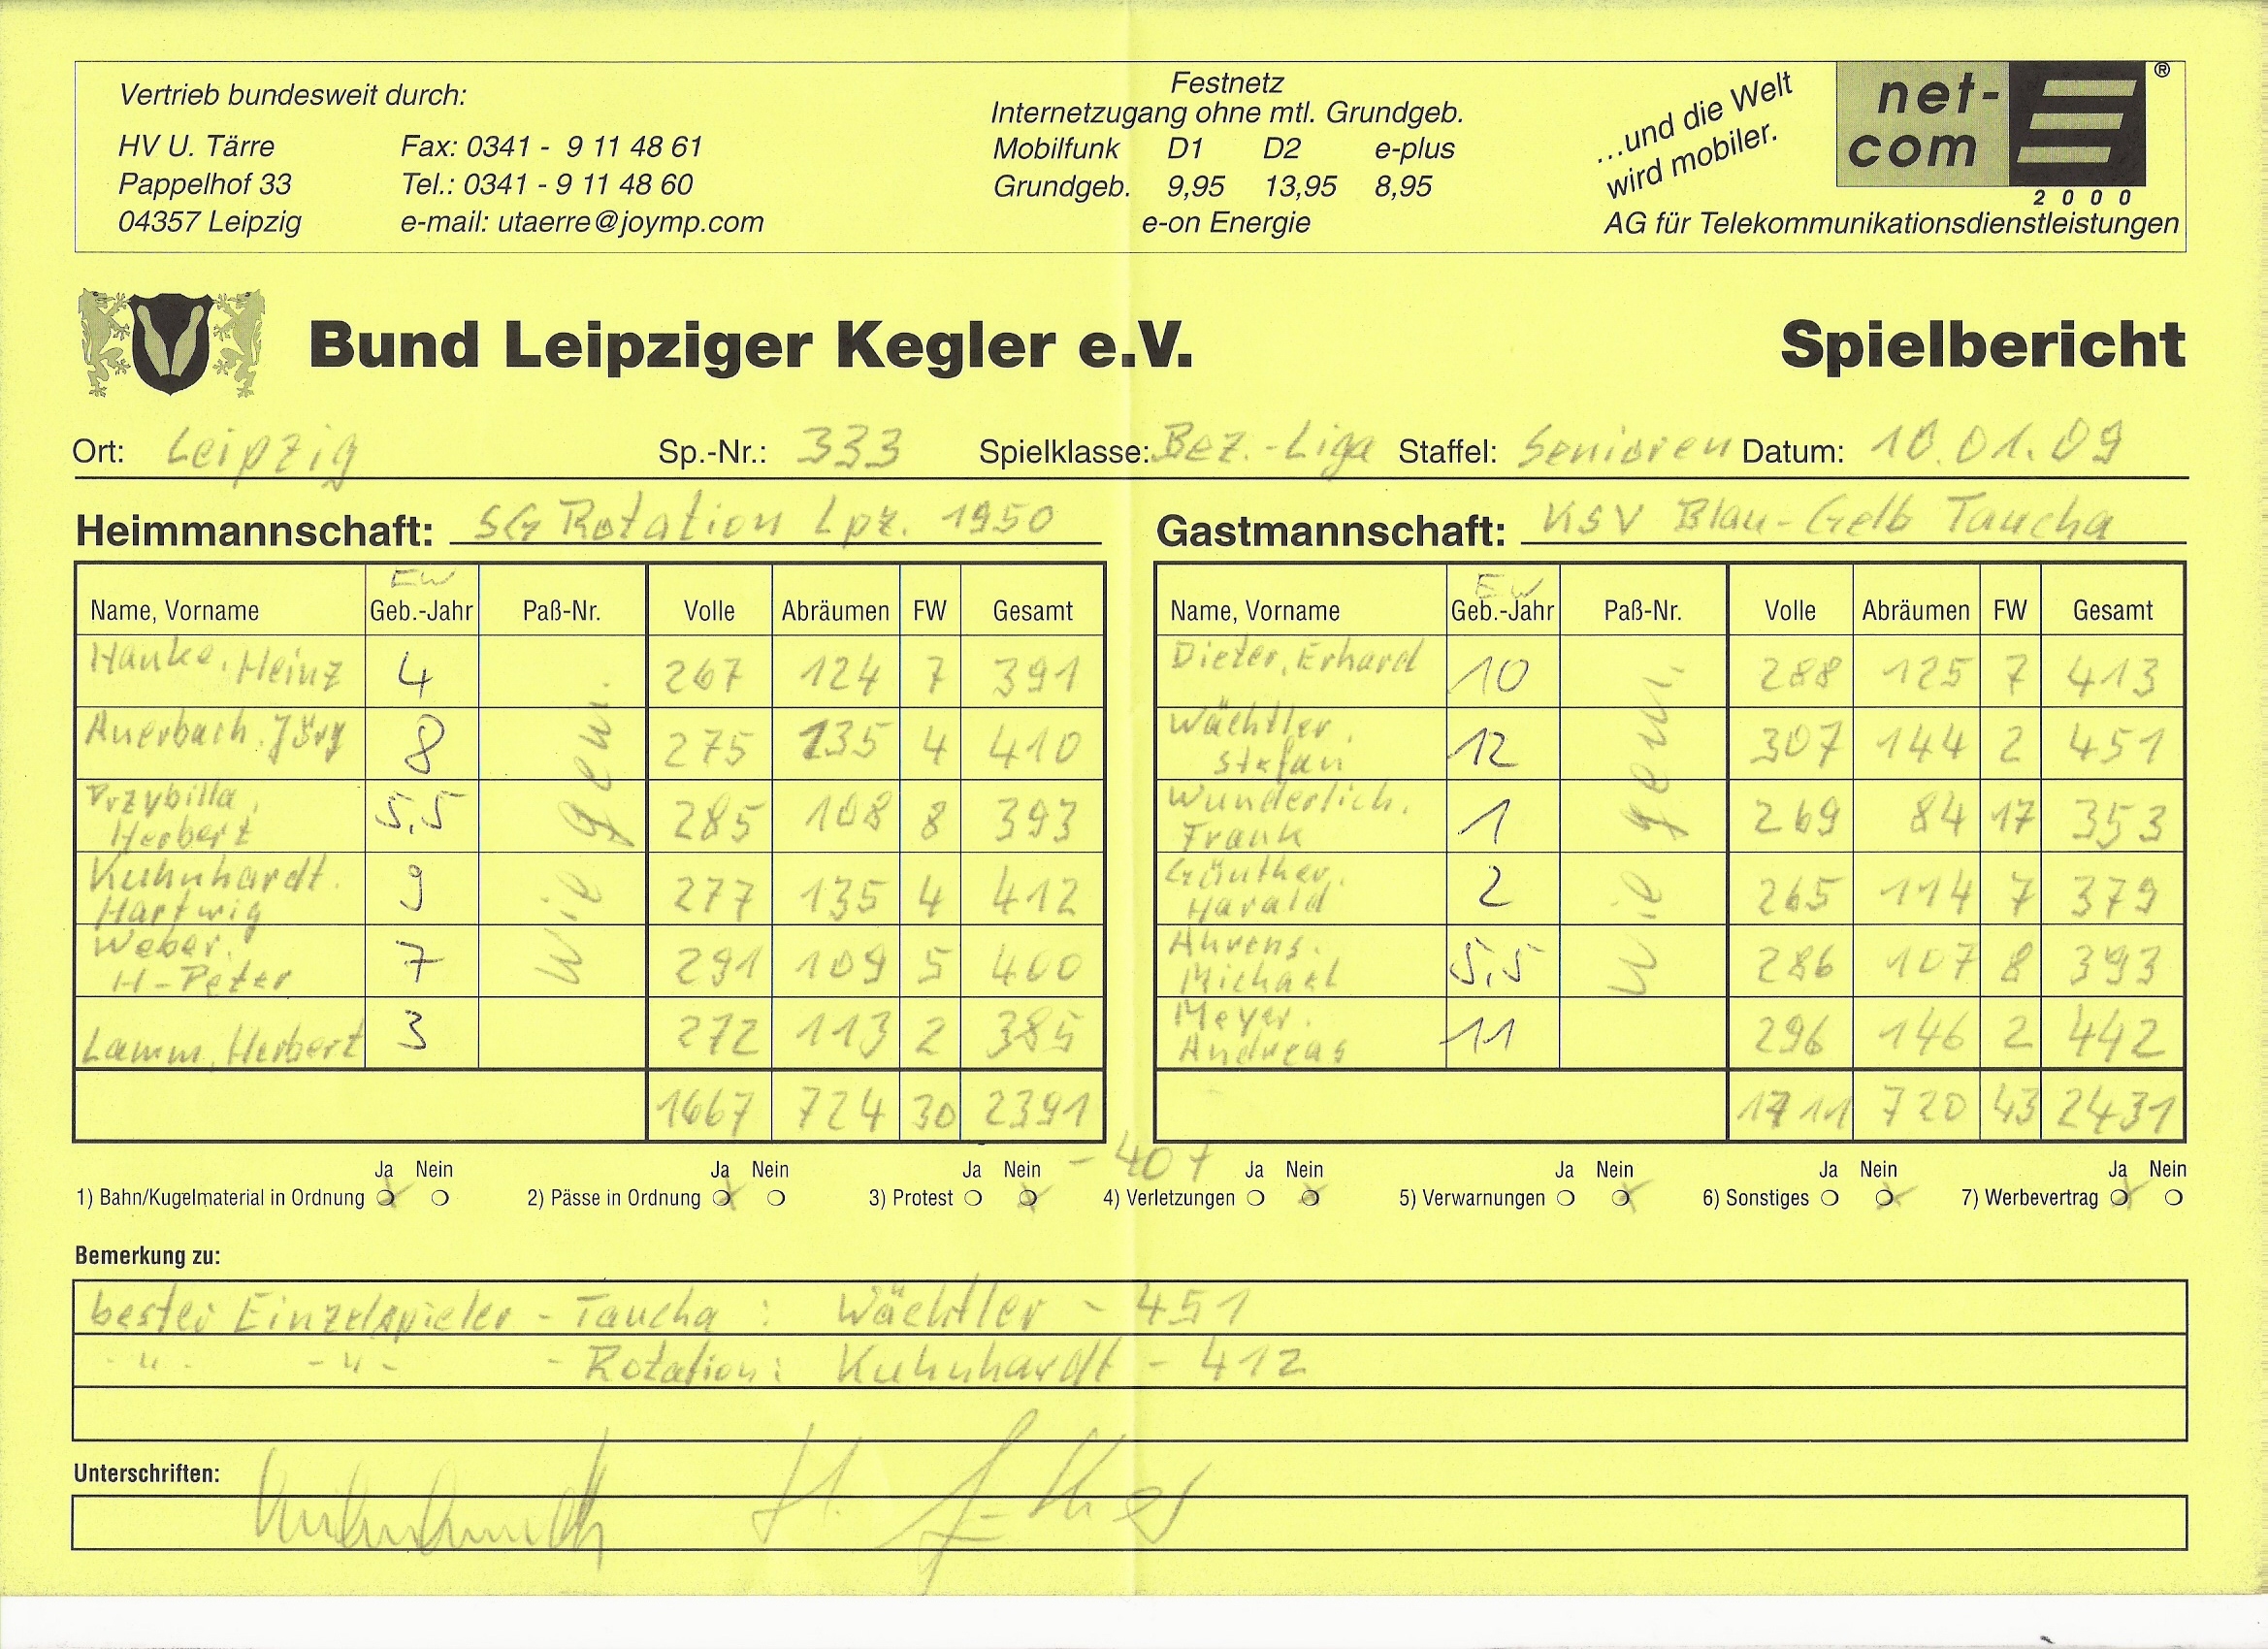 Vertrieb bundesweit durch:
HV U. Tärre Fax: 0341 - 9 11 48 61
Pappelhof 33 Tel.: 0341 - 9 11 48 60
04357 Leipzig e-mail: utaerre@joymp.com
Festnetz
Internetzugang ohne mtl. Grundgeb.
Mobilfunk D1 D2 e-plus
Grundgeb. 9,95 13,95 8,95
e-on Energie
...und die Welt
wird mobiler.
net-
com
®
2000
AG für Telekommunikationsdienstleistungen
Bund Leipziger Kegler e.V. Spielbericht
Ort: Leipzig Sp.-Nr.: 333 Spielklasse: Bez.-Liga Staffel: Senioren Datum: 10.01.09
Heimmannschaft: SG Rotation Lpz. 1950
EW
Name, Vorname Geb.-Jahr Paß-Nr. Volle Abräumen FW Gesamt
Hanke, Heinz 4 267 124 7 391
Auerbach, Jörg 8 275 135 4 410
Przybilla, Herbert 5,5 285 108 8 393
Kuhnhardt, Hartwig 9 277 135 4 412
Weber, H-Peter 7 291 109 5 400
Lamm, Herbert 3 272 113 2 385
wie gem.
1667 724 30 2391
Gastmannschaft: KSV Blau-Gelb Taucha
EW
Name, Vorname Geb.-Jahr Paß-Nr. Volle Abräumen FW Gesamt
Dieter, Erhard 10 288 125 7 413
Wächtler, Stefan 12 307 144 2 451
Wunderlich, Frank 1 269 84 17 353
Günther, Harald 2 265 114 7 379
Ahrens, Michael 5,5 286 107 8 393
Meyer, Andreas 11 296 146 2 442
wie gem.
1711 720 43 2431
- 407
Ja Nein Ja Nein Ja Nein Ja Nein Ja Nein Ja Nein Ja Nein
1) Bahn/Kugelmaterial in Ordnung 2) Pässe in Ordnung 3) Protest 4) Verletzungen 5) Verwarnungen 6) Sonstiges 7) Werbevertrag
Bemerkung zu:
bester Einzelspieler - Taucha : Wächtler - 451
-"- -"- - Rotation: Kuhnhardt - 412
Unterschriften: